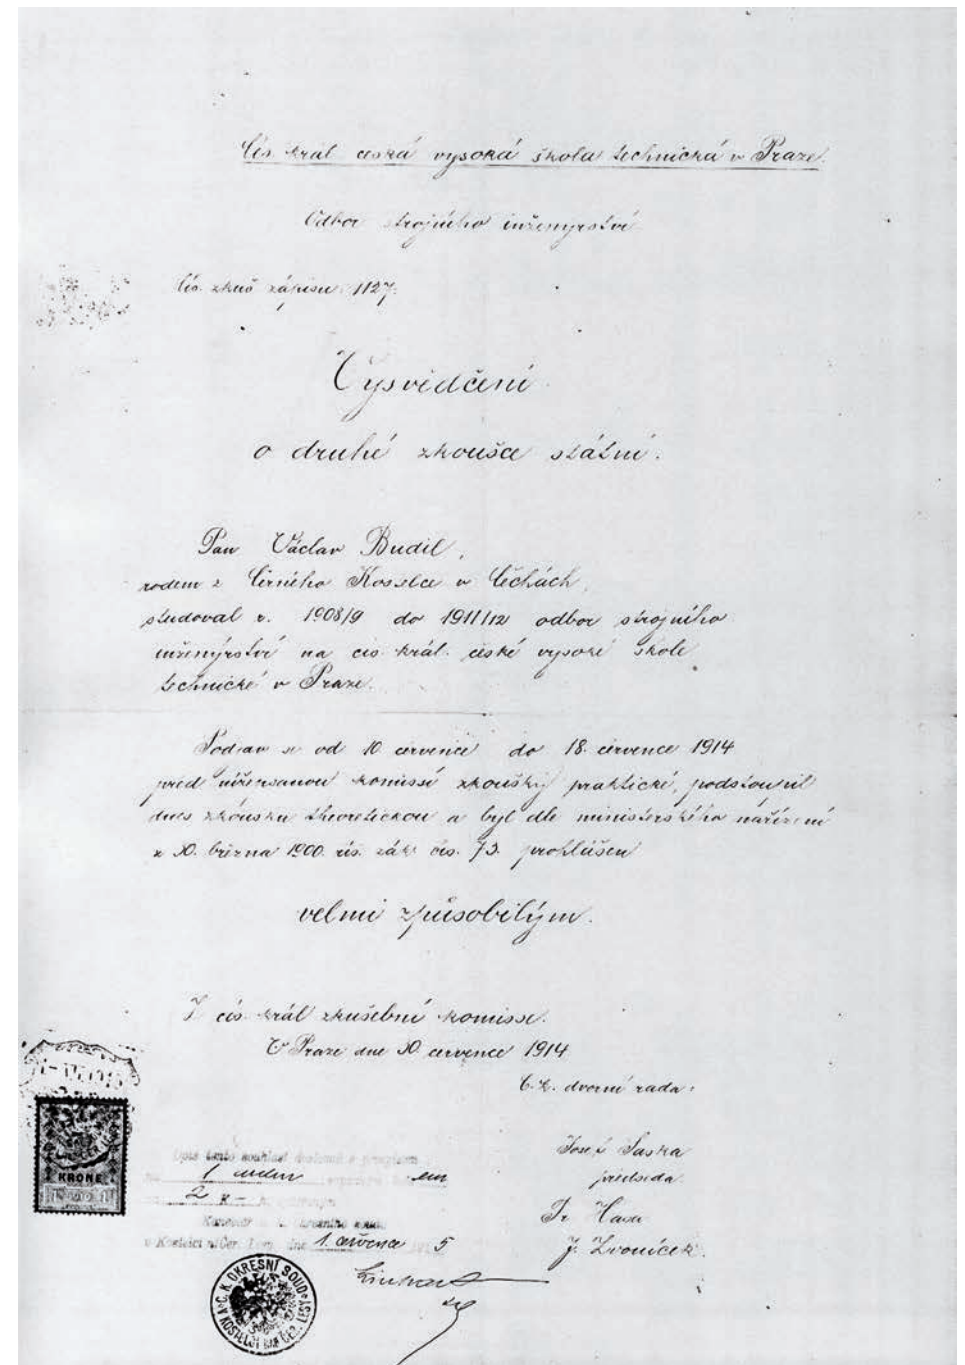 Čís. král. česká vysoká škola technická v Praze.
Odbor strojního inženýrství
Čís. zkuš zápisu 1127.
Vysvědčení
o druhé zkoušce státní.
Pan Václav Budil,
rodem z Černého Kostelce v Čechách,
studoval r. 1908/9 do 1911/12 odbor strojního
inženýrství na cís. král. české vysoké škole
technické v Praze.
Podrav se od 10. července do 18. července 1914
před nížepsanou komissí zkoušky praktické, podstoupil
dnes zkoušku theoretickou a byl dle ministerského nařízení
z 30. března 1900. řís. zák. čís. 73. prohlášen
velmi způsobilým.
Z cís. král zkušební komisse.
V Praze dne 30 července 1914
C. k. dvorní rada:
Josef Šaska
předseda.
Hasa
J. Zvoníček.
KRONE
Opis tento souhlasí
1 jeden
2 K–
okresního soudu
v Kostelci n/Čer. dne 1. července 5
C. K. OKRESNÍ SOUD V KOSTELCI NAD ČER. LESY